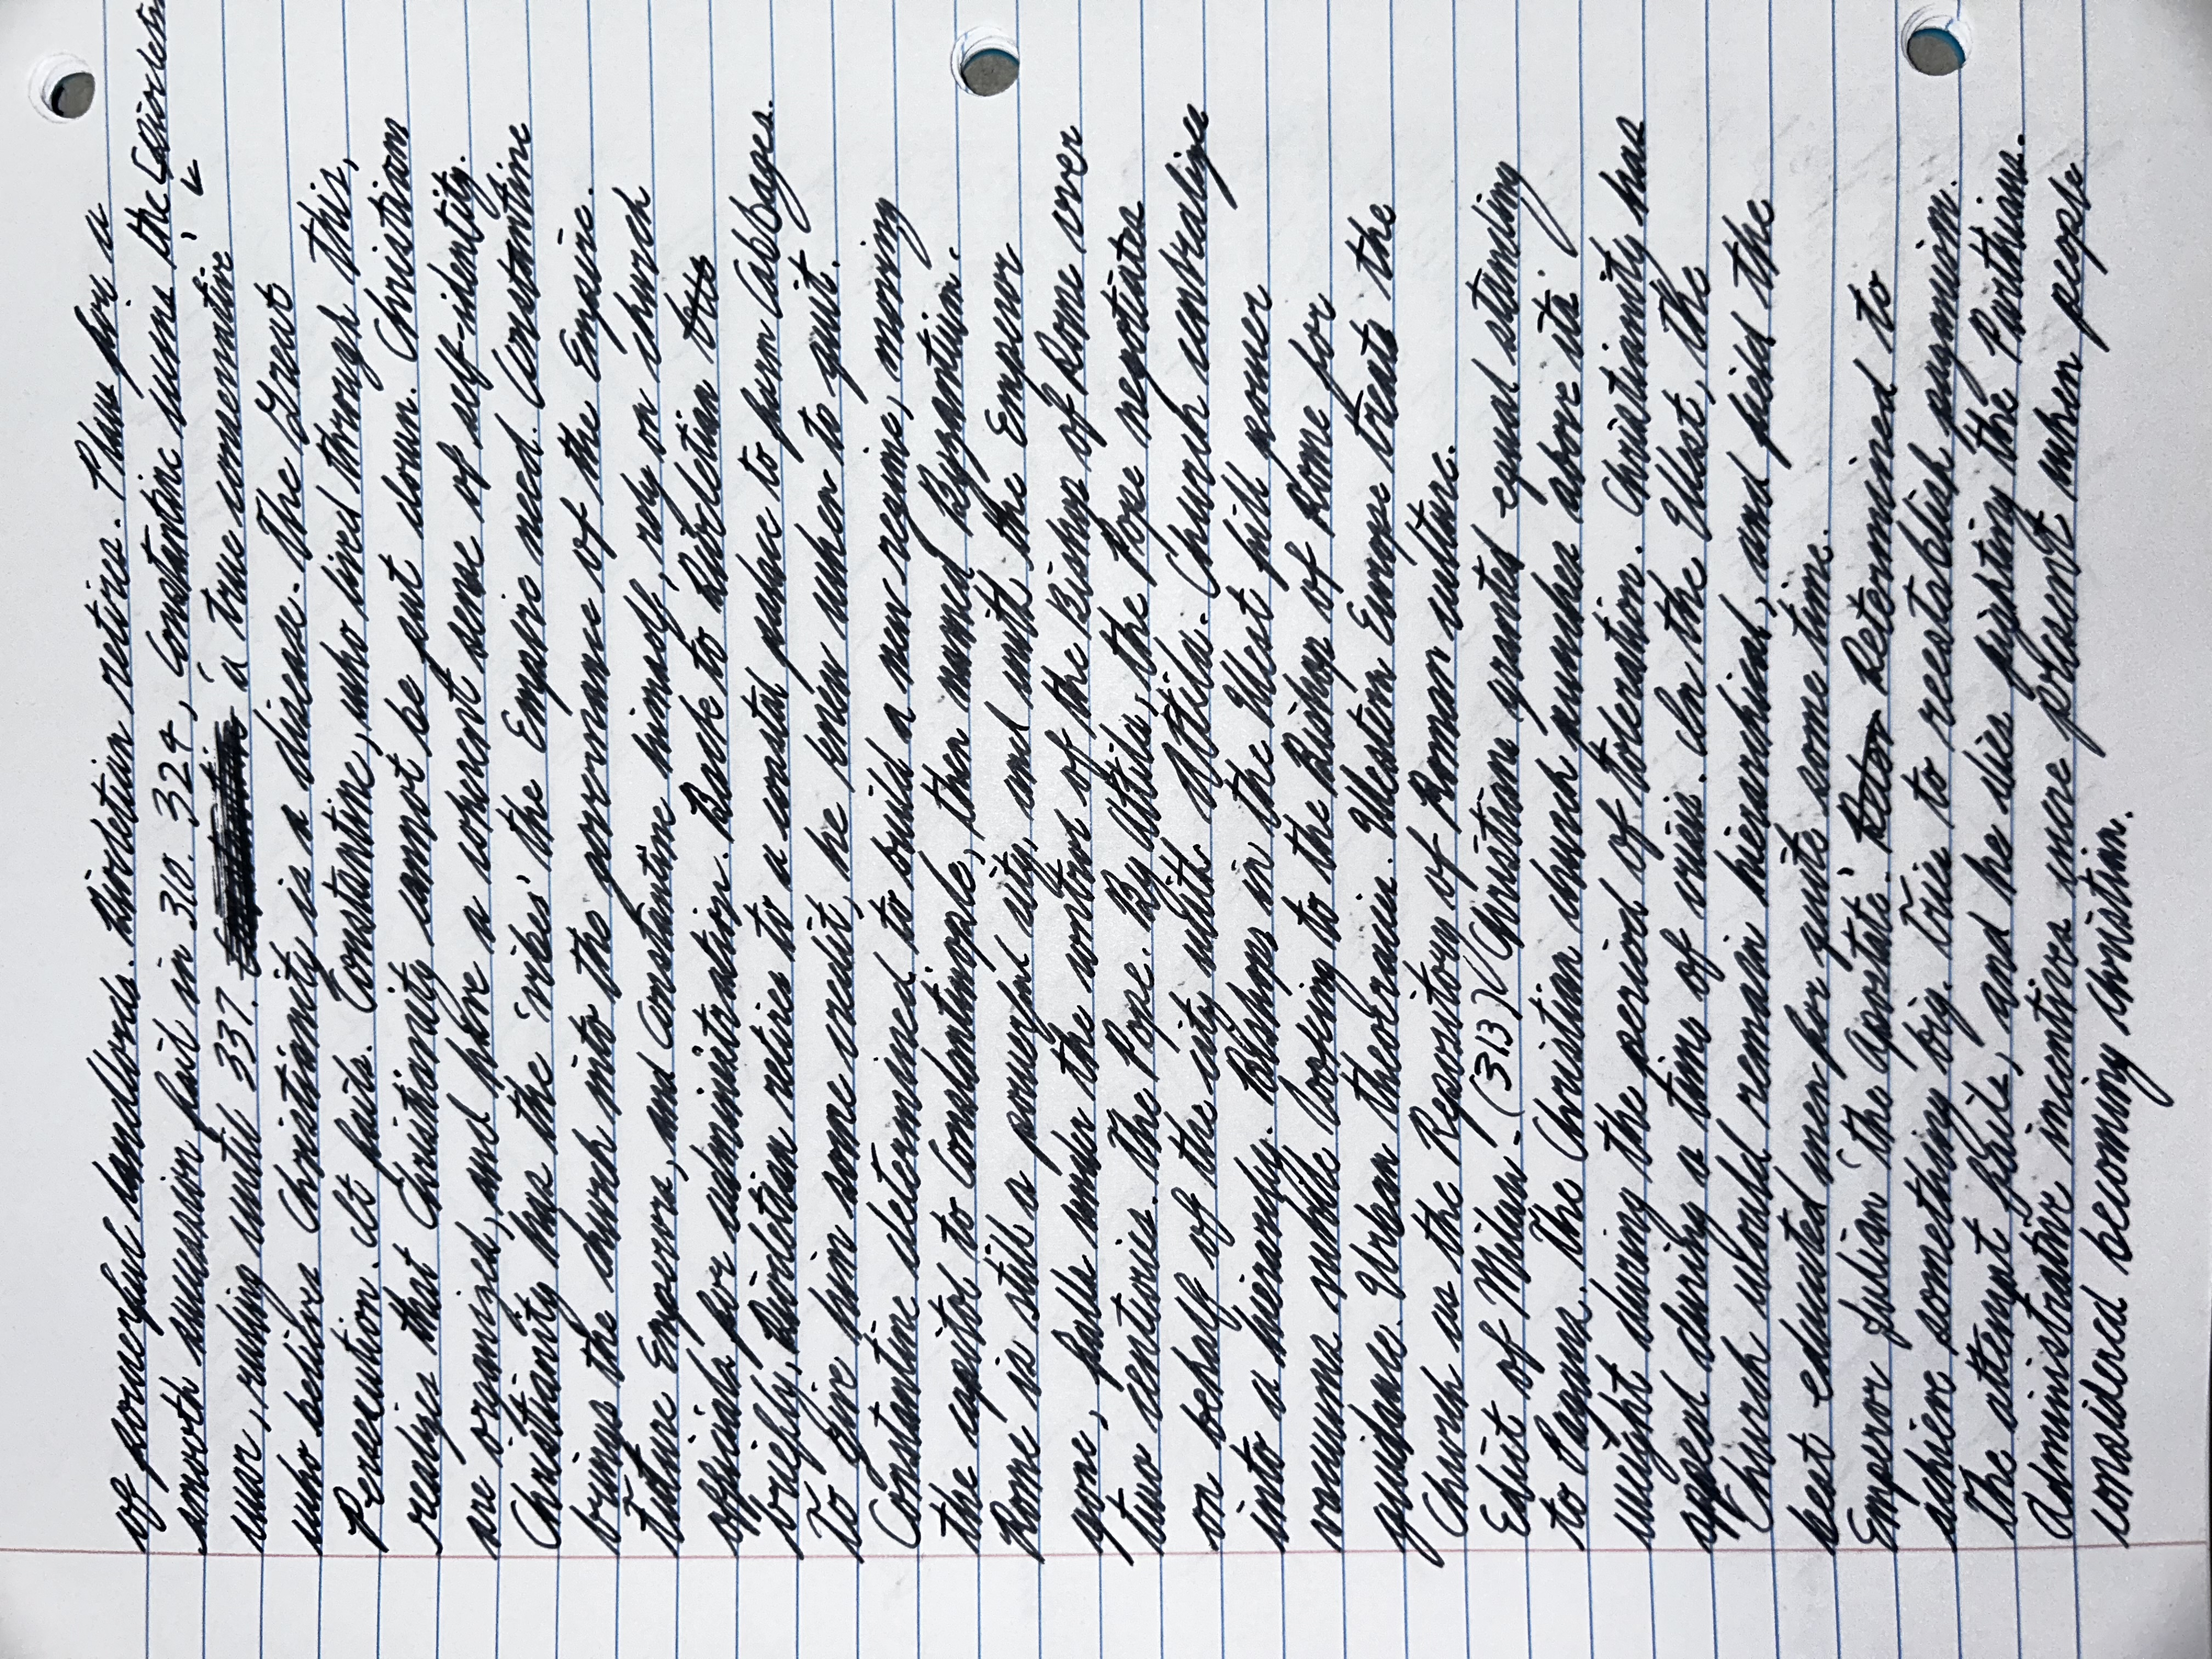 of powerful landlords. Diocletian retires. Plans for a
smooth succession fail in 310. 324, Constantine wins the
war, ruling until 337. 'a true conservative',
who belives Christianity is a disease. The Great
Persecution. It fails. Constantine, who lived through this,
realizes that Christianity cannot be put down. Christians
are organized, and have a coherent sense of self-identity.
Christianity has the 'vibes' the Empire need. Constantine
brings the church into the governance of the Empire.
Future Emperors, and Constantine himself, rely on church
officials for administration. Back to Diocletian
briefly, Diocletian retires to a coastal palace to farm cabbages.
To give him some credit, he knew when to quit.
Constantine determined to build a new regime, moving
the capitol to Constantinople, then named Byzantium.
Rome is still a powerful city, and with the Emperor
gone, falls under the control of the Bishop of Rome over
two centuries. The Pope. By Attila, the Pope negotiates
on behalf of the city with Attila. Church centralizes
into a hierarchy. Bishops in the West fill power
vacuums while looking to the Bishop of Rome for
guidance. Urban theocracies. Western Europe treats the
Church as the Repository of Roman culture.
Edict of Milan - (313) Christians granted equal standing
to Pagans. The Christian church punches above its
weight during the period of toleration. Christianity has
appeal during a time of crisis. In the West, the
Church would remain hierarchical, and field the
best educated men for quite some time.
Emperor Julian 'the Apostate'. Determined to
achieve something big. Tries to reestablish paganism.
The attempt fails, and he dies fighting the Parthians.
Administrative incentives were present when people
considered becoming Christian.